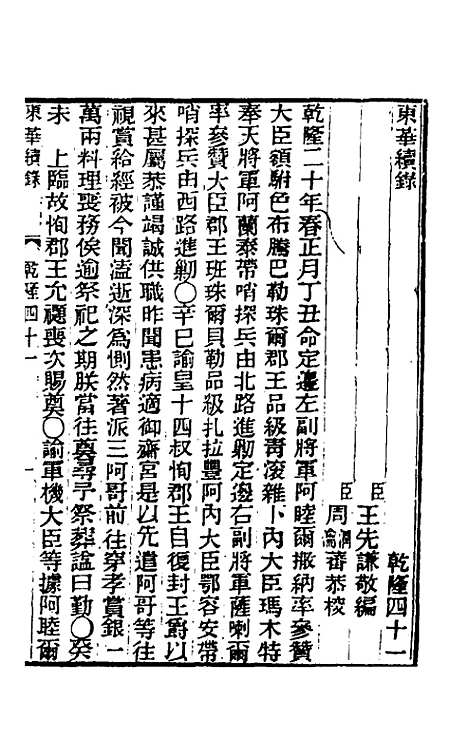 東華續錄
乾隆四十一
臣王先謙敬編
臣周潤蕃恭校
瀹
乾隆二十年春正月丁丑命定邊左副將軍阿睦爾撒納率參贊
大臣額駙色布騰巴勒珠爾郡王品級靑滾雜卜內大臣瑪木特
奉天將軍阿蘭泰帶哨探兵由北路進勦定邊右副將軍薩喇爾
率參贊大臣郡王班珠爾貝勒品級扎拉豐阿內大臣鄂容安帶
哨探兵由西路進勦○辛巳諭皇十四叔恂郡王自復封王爵以
來甚屬恭謹竭誠供職昨聞患病適御齋宮是以先遣阿哥等往
視賞給經被今聞溘逝深為惻然著派三阿哥前往穿孝賞銀一
萬兩料理喪務俟逾祭祀之期朕當往奠尋予祭葬諡曰勤○癸
未 上臨故恂郡王允禵喪次賜奠○諭軍機大臣等據阿睦爾
東華續錄 乾隆四十一 一